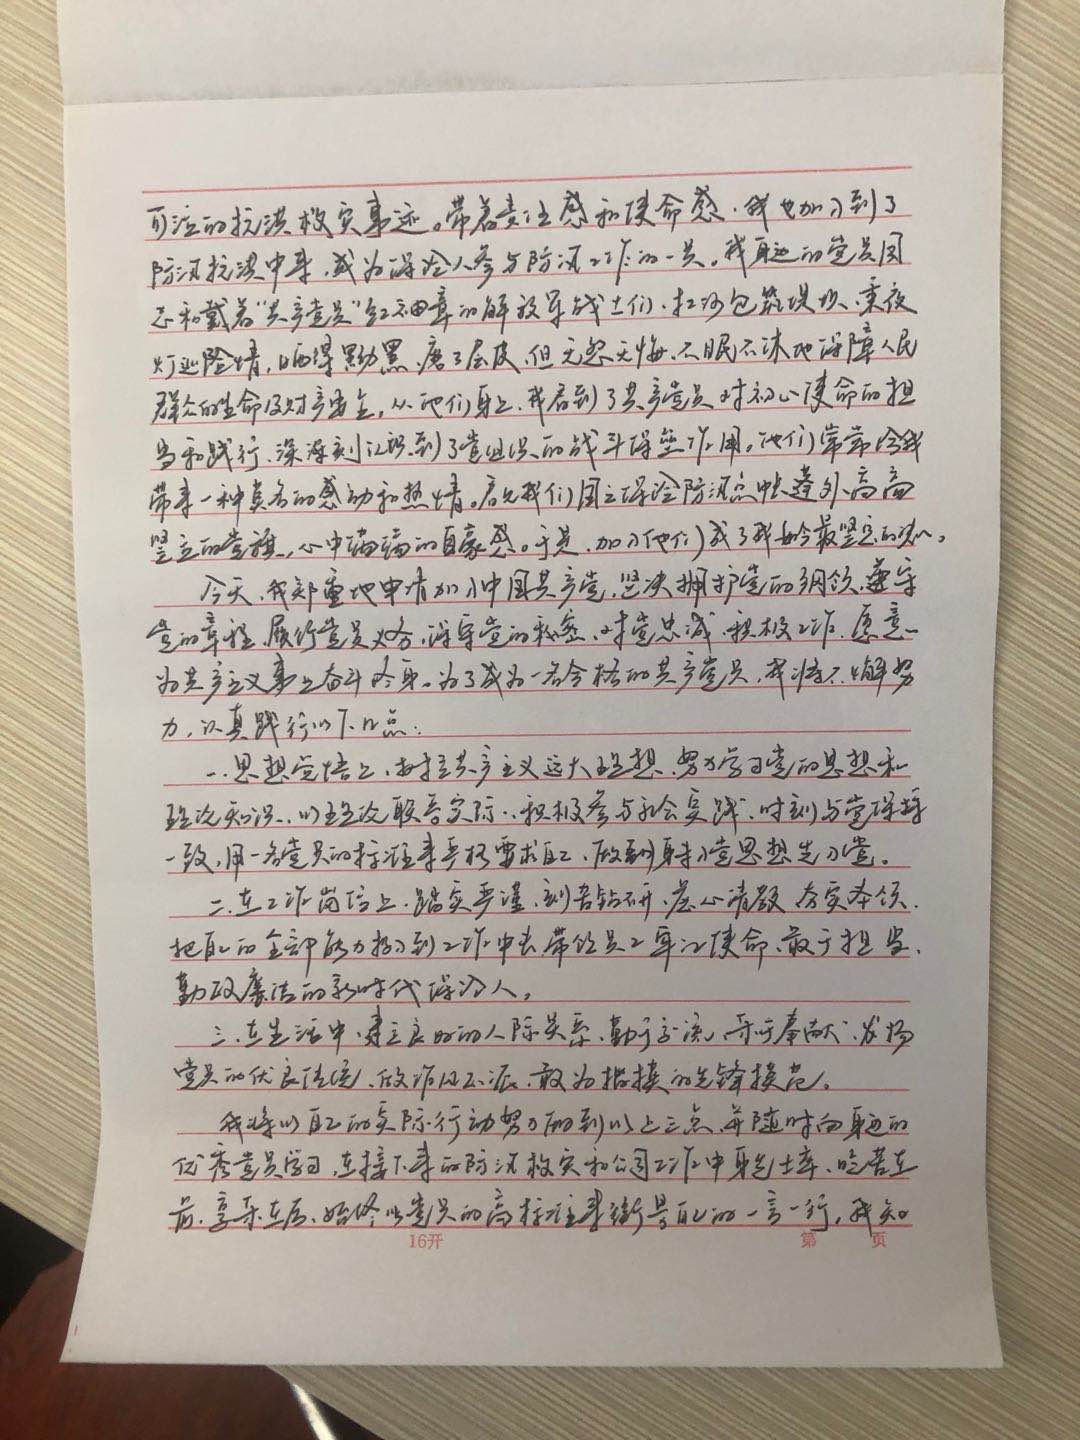 可泣的抗洪救灾事迹。带着责任感和使命感,我也加入到了
防汛抗洪中来,成为保险人参与防汛工作的一员。我身边的党员同
志和戴着"共产党员"红袖章的解放军战士们,扛沙包筑堤坝、秉夜
灯巡险情,晒得黝黑,磨了层皮,但无怨无悔、不眠不休地保障人民
群众的生命及财产安全,从他们身上,我看到了共产党员对初心使命的担
当和践行,深深刻认识到了党组织的战斗堡垒作用。他们常常给我
带来一种莫名的感动和热情。看见我们国立保险防汛点帐篷外高高
竖立的党旗,心中满满的自豪感。于是,加入他们成了我如今最坚定的决心。
今天,我郑重地申请加入中国共产党,坚决拥护党的纲领,遵守
党的章程,履行党员义务,保守党的秘密,对党忠诚,积极工作,愿意
为共产主义事业奋斗终身。为了成为一名合格的共产党员,我将不懈努
力,认真践行以下几点:
一、思想觉悟上,树立共产主义远大理想,努力学习党的思想和
理论知识,以理论联系实际,积极参与社会实践,时刻与党保持
一致,用一名党员的标准来严格要求自己,做到身未入党思想先入党。
二、在工作岗位上,踏实严谨、刻苦钻研、虚心请教、夯实本领,
把自己的全部能力投入到工作中去,带领员工牢记使命、敢于担当、
勤政廉洁的新时代保险人。
三、在生活中,建立良好的人际关系,勤于交流,乐于奉献,发扬
党员的优良传统,做作风正派、敢为楷模的先锋模范。
我将以自己的实际行动努力做到以上三点,并随时向身边的
优秀党员学习,在接下来的防汛救灾和公司工作中身先士卒、吃苦在
前、享乐在后、始终以党员的高标准来衡量自己的一言一行。我知
16开 第 页